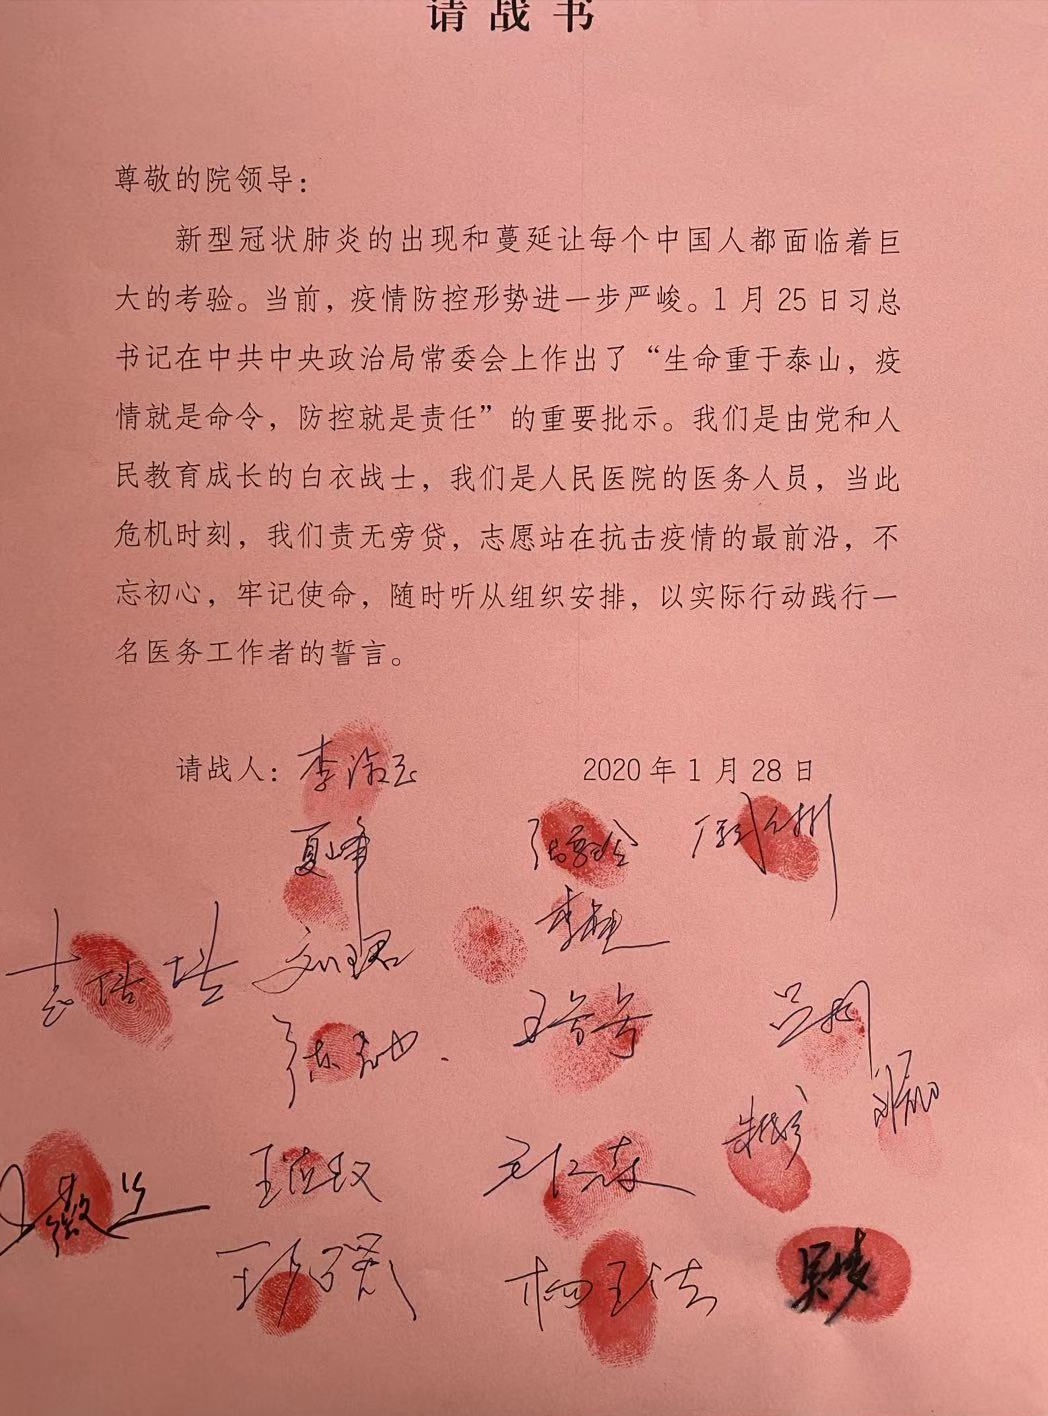 请战书
尊敬的院领导：
新型冠状肺炎的出现和蔓延让每个中国人都面临着巨
大的考验。当前，疫情防控形势进一步严峻。1月25日习总
书记在中共中央政治局常委会上作出了“生命重于泰山，疫
情就是命令，防控就是责任”的重要批示。我们是由党和人
民教育成长的白衣战士，我们是人民医院的医务人员，当此
危机时刻，我们责无旁贷，志愿站在抗击疫情的最前沿，不
忘初心，牢记使命，随时听从组织安排，以实际行动践行一
名医务工作者的誓言。
请战人： 2020年1月28日
夏峰
刘珺
杨玉洁